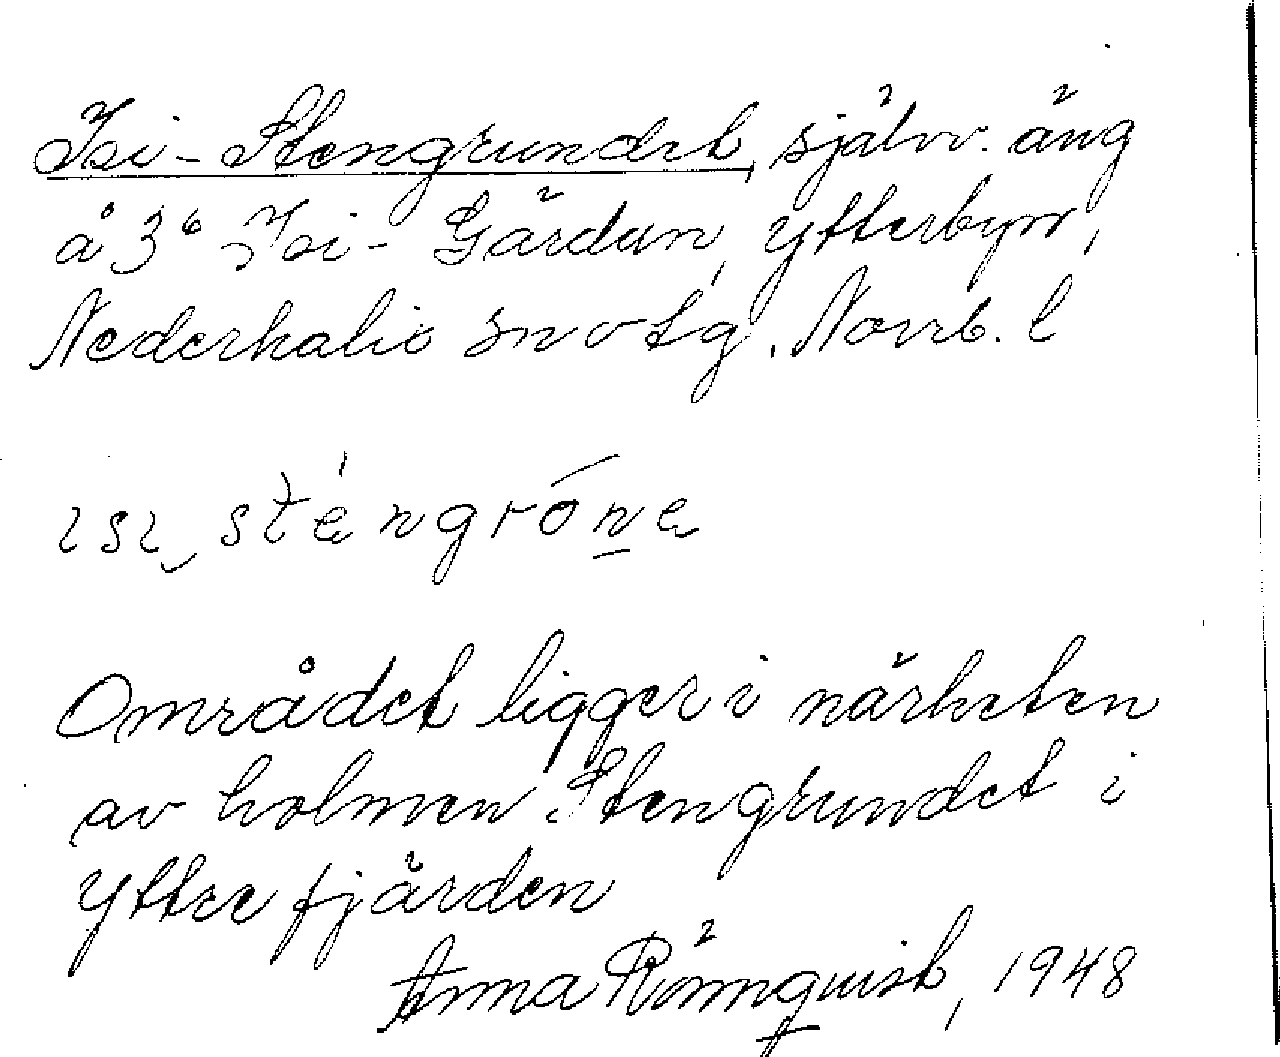 Isi-Stengrundet, självv. äng
å 3⁶ Isi-Gärdan, Ytterbyn,
Nederkalix sn o tg. Norrb. l
ɪsɪ sténgróne
Området ligger i närheten
av holmen Stengrundet i
Yttre fjärden
Anna Rönnquist, 1948